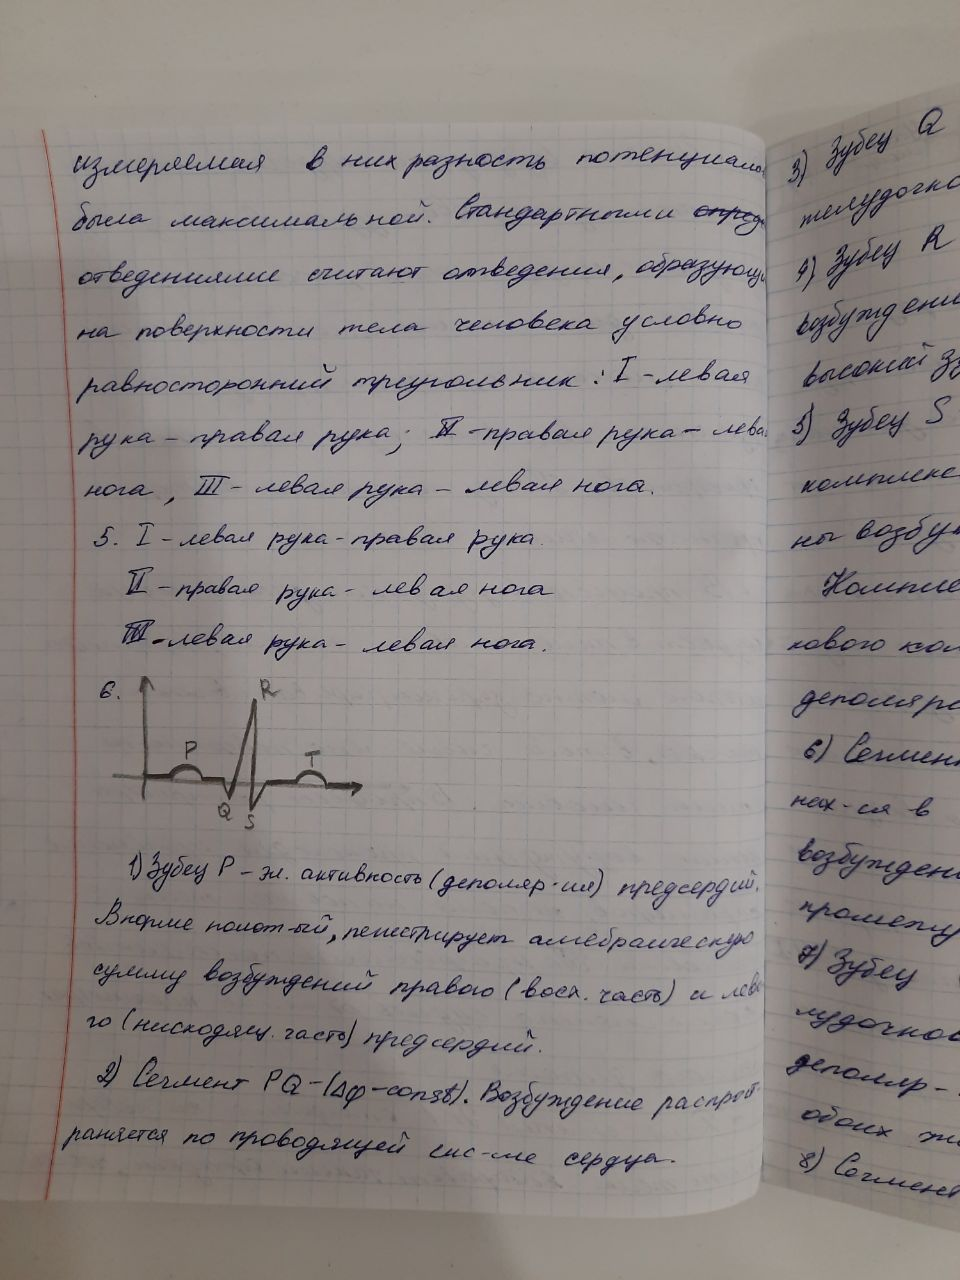 измеряемая в них разность потенциало
была максимальной. Стандартными опред
отведениями считают отведения, образующи
на поверхности тела человека условно
равносторонний треугольник: I - левая
рука - правая рука; II - правая рука - лева
нога, III - левая рука - левая нога.
5. I - левая рука - правая рука.
II - правая рука - левая нога
III - левая рука - левая нога.
6.
R
P
T
Q
S
1) Зубец P - эл. активность (деполяр-ия) предсердий.
В норме полож-ый, регистрирует алгебраическую
сумму возбуждений правого (восх. часть) и лево
го (нисходящ. часть) предсердий.
2) Сегмент PQ - (Δφ - const). Возбуждение распрост-
раняется по проводящей сис-ме сердца.
3) Зубец Q
желудочко
4) Зубец R
возбуждени
высокий зу
5) Зубец S
комплекс
ны возбу
Компле
кового ком
деполяри
6) Сегмент
нах-ся в
возбуждени
промежу
7) Зубец
лудочков
деполяр-
обоих же
8) Сегмент